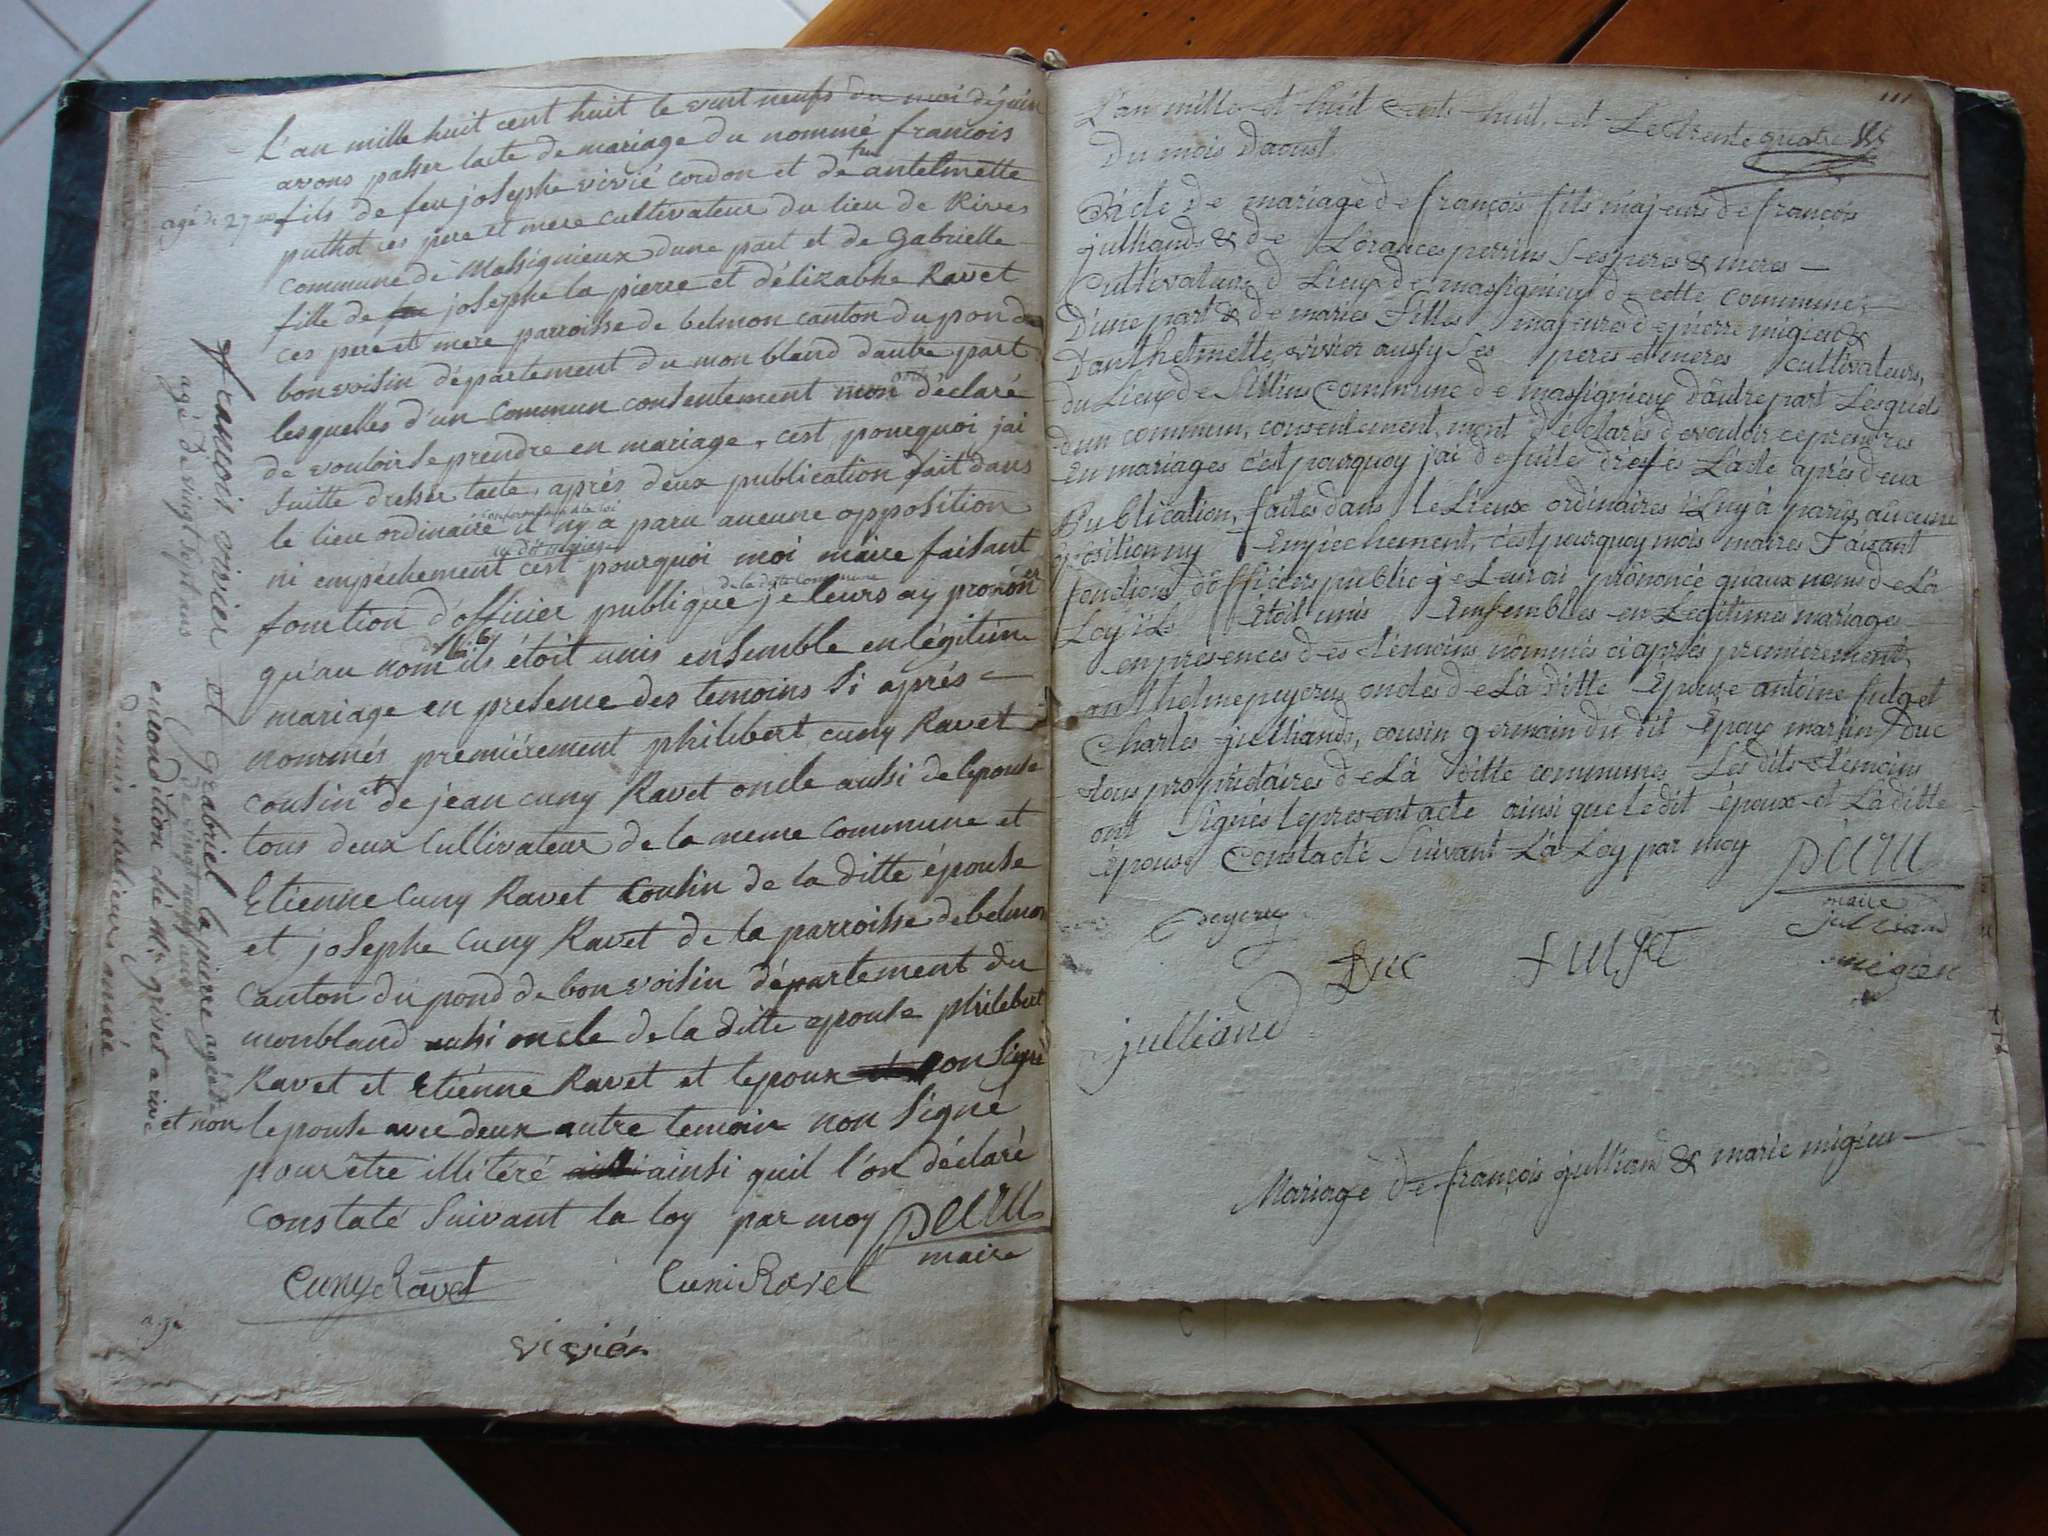 L'an mille huit cent huit le vint neufs du moi déjuin
avons passer lacte de mariage du nommé francois
agé de 27 ans
fils de feu josephe vivié cordon et de feu antelmette
puthot ces pere et mere cultivateur du lieu de Rives
commune de Massignieux dune part et de Gabrielle
fille de josephe la pierre et délizabhe Ravet
ces pere et mere parroisse de belmon canton du pon de
bonvoisin département du mon bland dautre part
lesquelles d'un commun consentement mon déclaré
de vouloir se prendre en mariage, cest pourquoi jai
suitte dresser lacte, aprés deux publication fait dans
le lieu ordinaire conformement a la loi il ny a paru aucune opposition
ni empéchement cest pourquoi moi maire faisant
fonction d'officier publique de la dite Commune je leurs ay prononcer
qu'au nom de la loy ils étoit unis ensemble en légitime
mariage en présence des temoins si aprés =
nommés premiérement philibert cuny Ravet
cousin et de jean cuny Ravet oncle aussi de lepouse
tous deux Cultivateur de la meme commune et
Etienne Cuny Ravet cousin de la ditte épouse
et josephe Cuny Ravet de la parroisse de belmon
canton du pond de bonvoisin département du
monbland aussi oncle de la ditte epouse philebert
Ravet et Etiénne Ravet et lepoux on signé
et non lepouse avec deux autre temoin non signé
pour être illitéré ainsi quil l'on déclaré
constaté suivant la loy par moy peyru
maire
Cuny Ravet Cuni Ravet
viviér
francois vivier et Grabriel la pierre agée de
agé de vingt sept ans
de vingt neuf ans
en condition ché Mr griset a rive
depuis plusieurs année
agé
111
L'an mille et huit cents huit, et Le trente quatre
Du mois Daoust
Acte de mariage de françois fils majeurs de françois
julliands & de Lorances perrins ses peres & meres —
Cultivateurs d Lieux de massignieux de cette commune,
D'une part & de maries filles majeures de pierre migieu &
Danthelmette vivier aussy ses peres et meres cultivateurs,
du Lieux de Sillins Commune de massignieux d'autre part Lesquels
dun commun, consentement, mont déclarés de vouloir ce prendres
En mariages c'est pourquoy j'ai de suite dressés L'acte aprés deux
Publication, faites dans le Lieux ordinaires il ny à parus, aucune
opositionny Empéchement, cest pourquoy mois maires Faisant
fonctions d'officiers public je Leur ai prononcé qu'aux noms de La
Loy ils Etoit unis Ensembles en Legitimes mariages
en presences des témoins nommés ci aprés premierement,
anthelme peyeru oncles de La ditte Epouse antoine fulget
Charles julliands, cousin germain du dit Epoux martin Duc
tous propriétaires de La ditte communes, Les dits témoins
ont signés le present acte ainsi que le dit époux et La ditte
épouse Constaté suivant La Loy par moy peyru
maire
peyeru Duc fulget julliand
julliand migieu
Mariage de françois julliand & marie migieu —